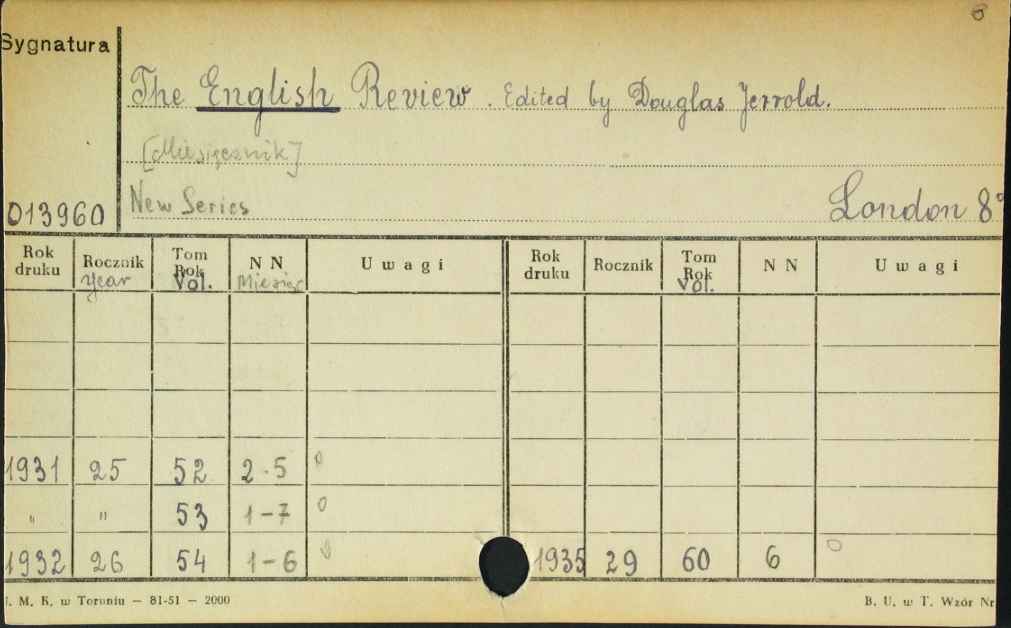 8
Sygnatura
The English Review. Edited by Douglas Jerrold.
[Miesięcznik]
New Series London 8°
013960
Rok druku Rocznik Year Tom Rok Vol. N N Miesiąc Uwagi Rok druku Rocznik Tom Rok Vol. N N Uwagi
1931 25 52 2-5 0
" " 53 1-7 0
1932 26 54 1-6 0 1935 29 60 6 0
. M. K. w Toruniu — 81-51 — 2000 B. U. w T. Wzór Nr